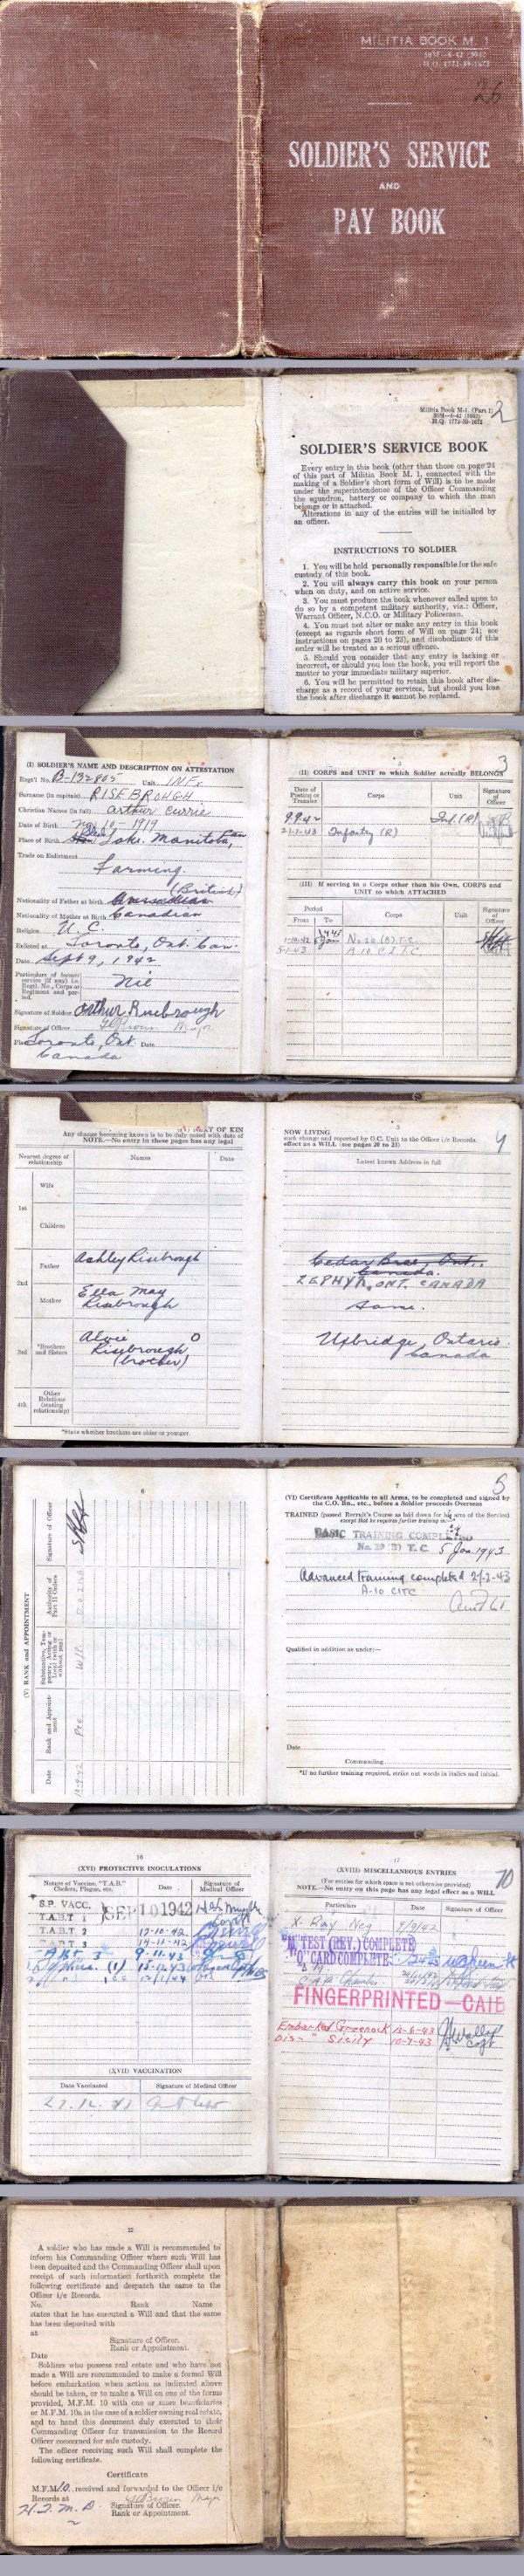 MILITIA BOOK M. 1
26
SOLDIER'S SERVICE
AND
PAY BOOK
Militia Book M-1. (Part I)
2
SOLDIER'S SERVICE BOOK
Every entry in this book (other than those on page 24
of this part of Militia Book M. 1, connected with the
making of a Soldier's short form of Will) is to be made
under the superintendence of the Officer Commanding
the squadron, battery or company to which the man
belongs or is attached.
Alterations in any of the entries will be initialled by
an officer.
INSTRUCTIONS TO SOLDIER
1. You will be held personally responsible for the safe
custody of this book.
2. You will always carry this book on your person
when on duty, and on active service.
3. You must produce the book whenever called upon to
do so by a competent military authority, viz.: Officer,
Warrant Officer, N.C.O. or Military Policeman.
4. You must not alter or make any entry in this book
(except as regards short form of Will on page 24; see
instructions on pages 20 to 23), and disobedience of this
order will be treated as a serious offence.
5. Should you consider that any entry is lacking or
incorrect, or should you lose the book, you will report the
matter to your immediate military superior.
6. You will be permitted to retain this book after dis-
charge as a record of your service, but should you lose
the book after discharge it cannot be replaced.
(I) SOLDIER'S NAME AND DESCRIPTION ON ATTESTATION
Regt'l No. B-132805 Unit INF.
Surname (in capitals) RISEBROUGH
Christian Names (in full) Arthur Currie
Date of Birth Nov 10 - 1919
Place of Birth Lake. Manitoba, Can
Trade on Enlistment
Farming.
(British)
Nationality of Father at birth Canadian
Nationality of Mother at Birth Canadian
Religion U. C.
Enlisted at Toronto, Ont. Can.
Date Sept 9, 1942
Particulars of former
service (if any) i.e.
Regtl. No., Corps or
Regiment and per-
iod.
Nil
Signature of Soldier Arthur Risebrough
Signature of Officer
Place Toronto, Ont. Date
Canada
3
(II) CORPS and UNIT to which Soldier actually BELONGS
Date of Posting or Transfer Corps Unit Signature of Officer
9.9.42 Inf. (R)
21-2-43 Infantry (R)
(III) If serving in a Corps other than his Own, CORPS and
UNIT to which ATTACHED
Period Corps Unit Signature of Officer
From To
No 20 (B) T.C.
5-1-43 A.10 C.I.T.C.
4
OF KIN
Any change becoming known is to be duly noted with date of
NOTE.—No entry in these pages has any legal
Nearest degree of relationship Names Date
1st Wife
Children
2nd Father Ashley Risebrough
Mother Ella May
Risebrough
3rd *Brothers and Sisters Alvie O
Risebrough
(brother)
4th Other Relations (stating relationship)
*State whether brothers are older or younger.
NOW LIVING
such change and reported by O.C. Unit to the Officer i/c Records.
effect as a WILL (see pages 20 to 23)
Latest known Address in full
Cedar Brae Ont.,
Canada.
ZEPHYR, ONT. CANADA
Same.
Uxbridge, Ontario.
Canada
6
(V) RANK and APPOINTMENT
Date
Rank and Appointment
Substantive, Temporary, Acting or Local (with or without pay)
Authority of Part II Orders
Signature of Officer
Pte.
W/P.
7
5
(VI) Certificate Applicable to all Arms, to be completed and signed by
the C.O. Bn., etc., before a Soldier proceeds Overseas
TRAINED (passed Recruit's Course as laid down for his arm of the Service)
except that he requires further training in:—
BASIC TRAINING COMPLETED
T. C. 5 Jan. 1943
Advanced training completed 21-2-43
A-10 CITC
Qualified in addition as under:—
Date
Commanding
*If no further training required, strike out words in italics and initial.
16
(XVI) PROTECTIVE INOCULATIONS
Nature of Vaccine, "T.A.B." Cholera, Plague, etc. Date Signature of Medical Officer
S.P. VACC.
T.A.B.T 1 SEP 10 1942
T.A.B.T 2 12-10-42
T.A.B.T 3 14-11-42
9-11-43
(1) 15-12-43
12/1/44
(XVII) VACCINATION
Date Vaccinated Signature of Medical Officer
17
10
(XVIII) MISCELLANEOUS ENTRIES
(For entries for which space is not otherwise provided)
NOTE.—No entry on this page has any legal effect as a WILL
Particulars Date Signature of Officer
X-Ray Neg 9/9/42
"M" TEST (REV.) COMPLETE
"O" CARD COMPLETE
FINGERPRINTED—CAIB
Embarked Greenock 13-6-43
Dis- " Sicily 10-7-43
22
A soldier who has made a Will is recommended to
inform his Commanding Officer where such Will has
been deposited and the Commanding Officer shall upon
receipt of such information forthwith complete the
following certificate and despatch the same to the
Officer i/c Records.
No. Rank Name
states that he has executed a Will and that the same
has been deposited with
at
Signature of Officer.
Rank or Appointment.
Date
Soldiers who possess real estate and who have not
made a Will are recommended to make a formal Will
before embarkation when action as indicated above
should be taken, or to make a Will on one of the forms
provided, M.F.M. 10 with one or more beneficiaries
or M.F.M. 10a in the case of a soldier owning real estate,
and to hand this document duly executed to their
Commanding Officer for transmission to the Record
Officer concerned for safe custody.
The officer receiving such Will shall complete the
following certificate.
Certificate
M.F.M/10. received and forwarded to the Officer i/c
Records at
Signature of Officer.
Rank or Appointment.